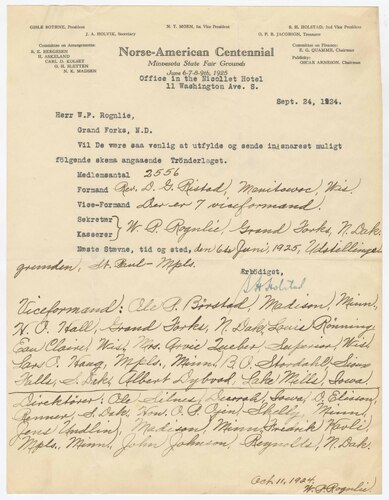 GISLE BOTHNE, President
J. A. HOLVIK, Secretary
N. T. MOEN, 1st Vice President
S. H. HOLSTAD, 2nd Vice President
O. P. B. JACOBSON, Treasurer
Committee on Arrangements:
S. E. BERGESEN
H. ASKELAND
CARL D. KOLSET
O. H. SLETTEN
N. K. MADSEN
Norse-American Centennial
Minnesota State Fair Grounds
June 6-7-8-9th, 1925
Committee on Finance:
E. G. QUAMME, Chairman
Publicity:
OSCAR ARNESON, Chairman
Office in the Nicollet Hotel
11 Washington Ave. S.
Sept. 24, 1924.
Herr W.P. Rognlie,
Grand Forks, N.D.
Vil De være saa venlig at utfylde og sende ingsnarest muligt
følgende skema angaaende Trönderlaget.
Medlemsantal 2556
Formand Rev. D. G. Ristad, Manitowoc, Wis.
Vise-Formand Der er 7 viseformænd.
Sekretær
Kasserer } W. P. Rognlie, Grand Forks, N. Dak.
Næste Stævne, tid og sted, den 6te Juni, 1925, Udstillings
grunden, St. Paul - Mpls.
Erbödigst,
S H Holstad
Viceformænd: Ole P. Börstad, Madison, Minn.
H. O. Hall, Grand Forks, N. Dak, Louis Rönning
Eau Claire, Wis., Mrs. Arvie Queber Superior, Wis.
Lars O. Haug, Mpls., Minn., B. O. Stordahl, Sioux
Falls, S. Dak, Albert Dybvad, Lake Mills, Iowa
Direktörer: Ole Silnes, Decorah, Iowa, O. Eliason,
Renner, S. Dak. Hon. O. P. Ojen, Skelly, Minn,
Jens Undlin, Madison, Minn, Frank Havlie
Mpls, Minn, John Johnson, Reynolds, N. Dak.
Oct. 11, 1924.
W. P. Rognlie